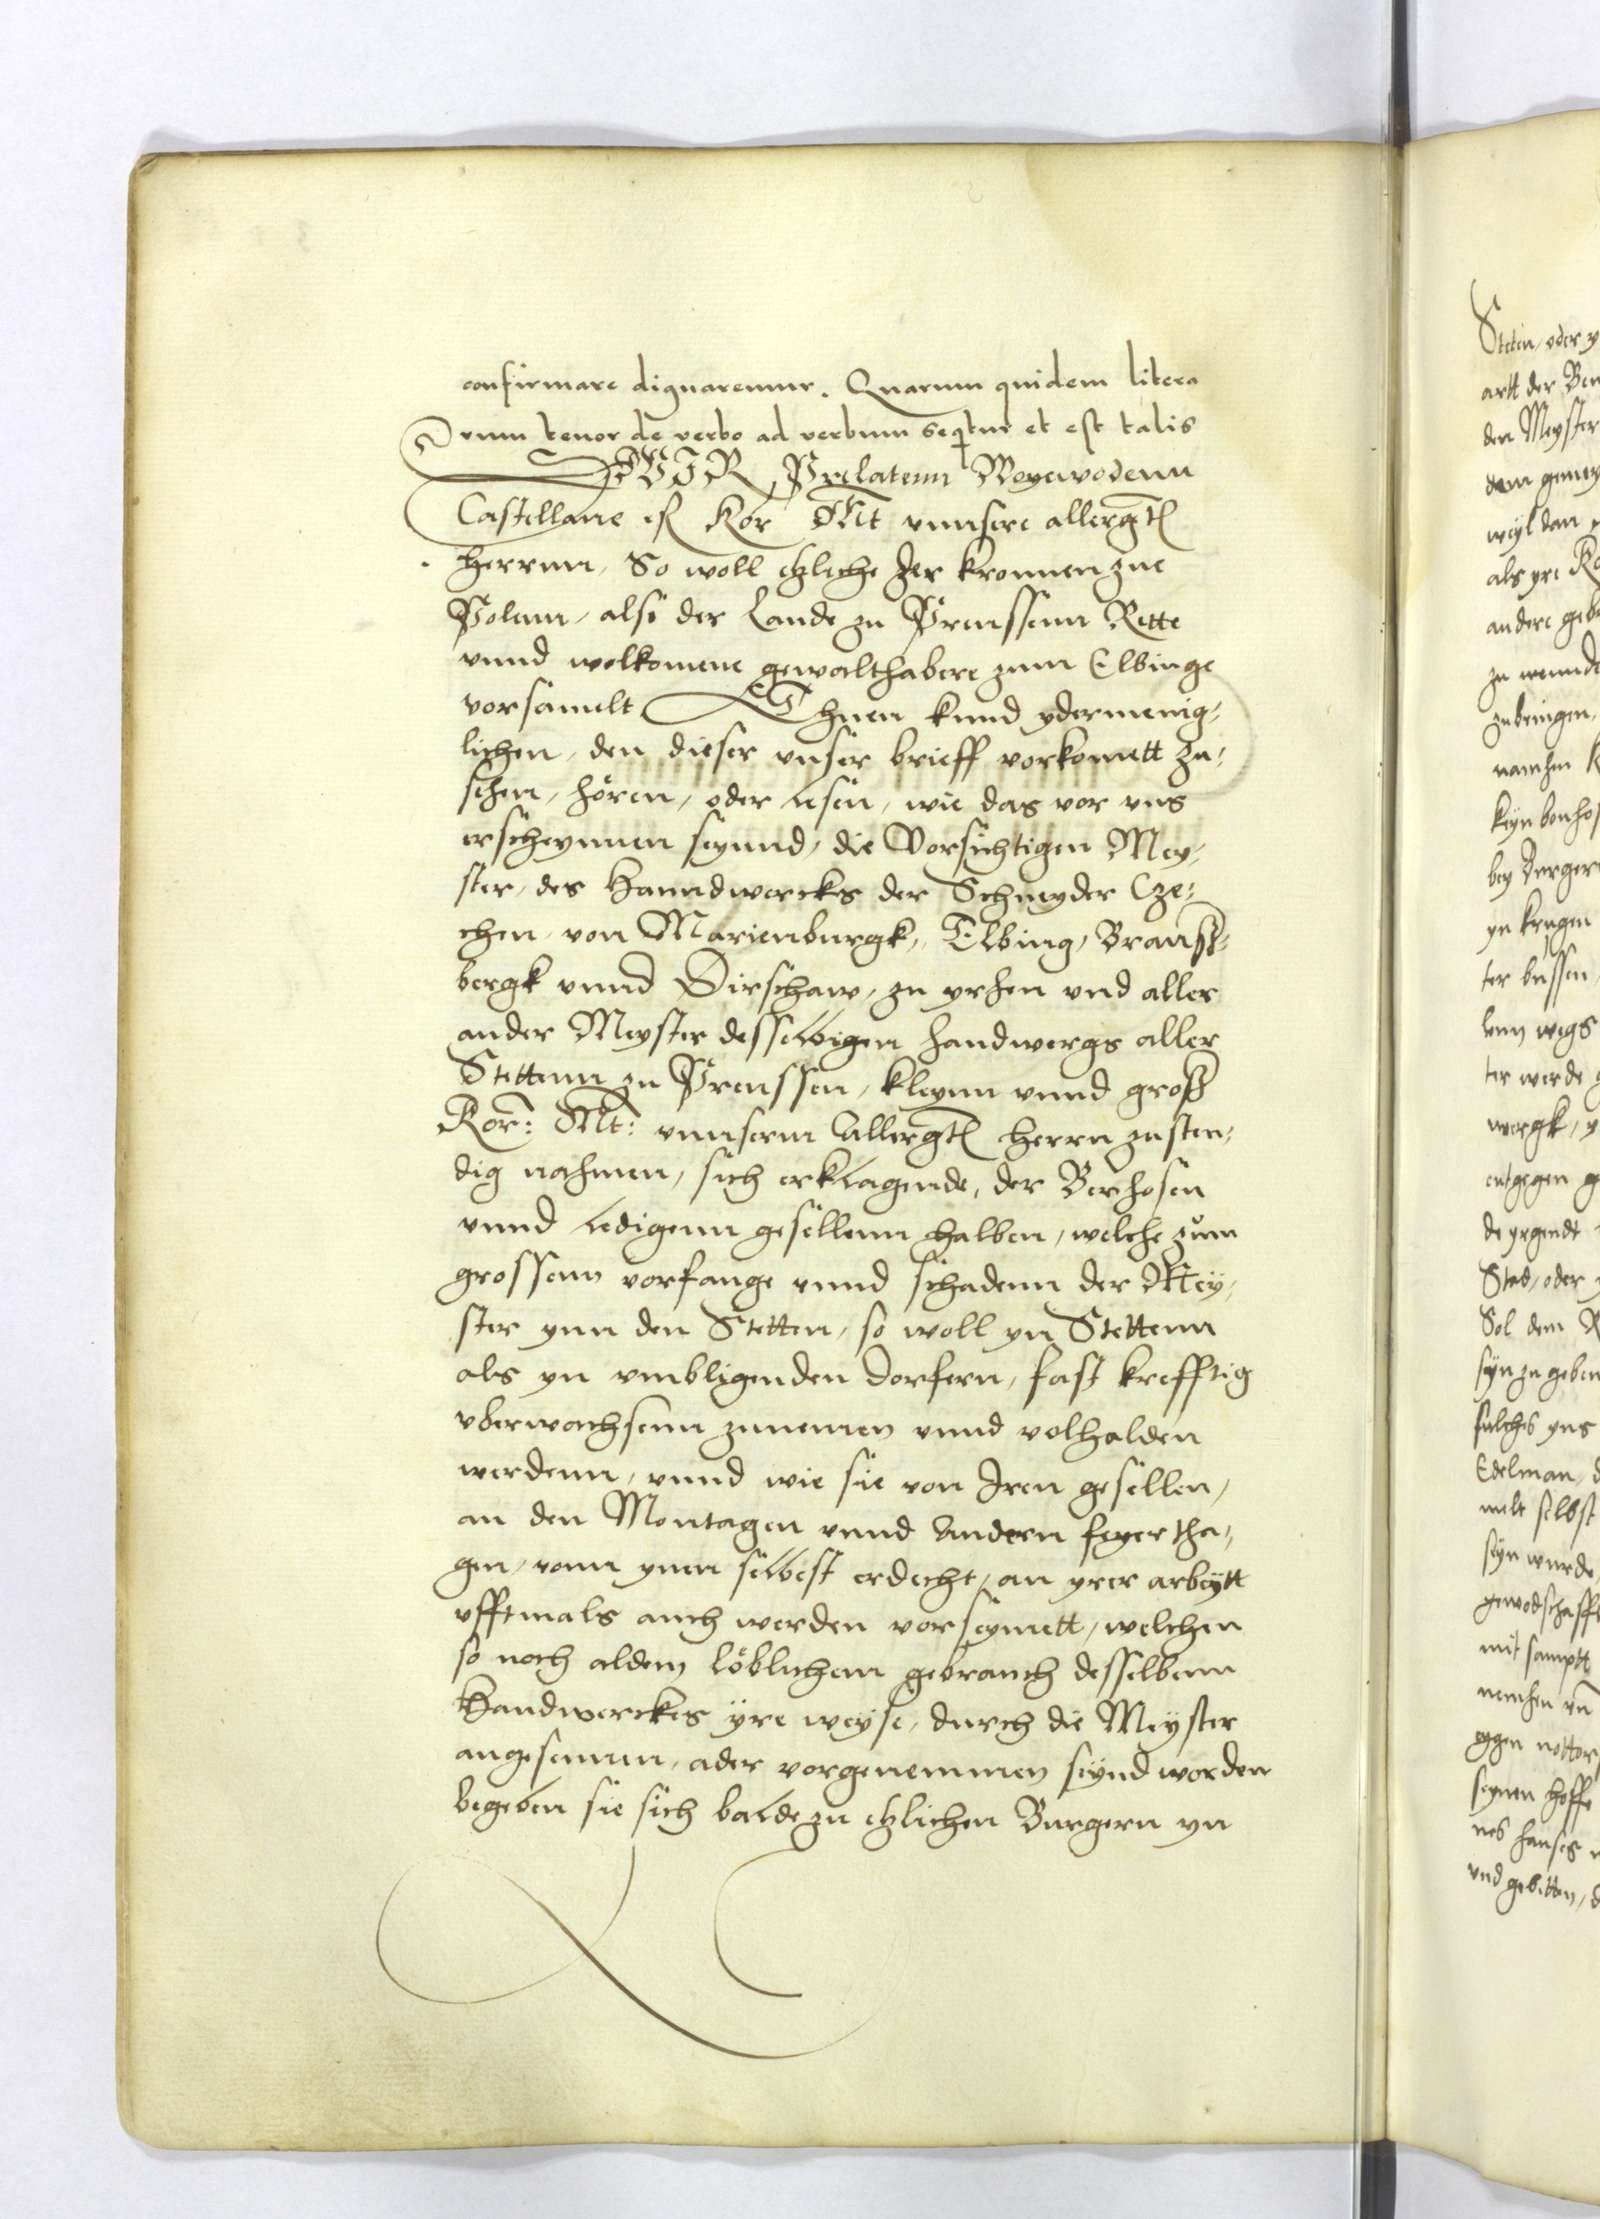 confirmare dignaremur. Quarum quidem litera
rum tenor de verbo ad verbum seqitur et est talis
WIR Prelatenn Woyewodenn
Castellane etc Kor Mt vnnsere allergtes
herrnn, So woll etzliche Jer kronnen zue
Polenn, alse der Lande zu Preussenn Rette
vnnd wolkomene gewalthabere zum Elbinge
vorsamelt Thuen kund ydermenig-
lichen, den dieser vnser brieff vorkomett zu-
sehen, hören, oder lesen, wie das vor vns
erscheynnen seynnd, die Vorsichtigen Mey-
ster, des Hanndwerckes der Schneyder Cze-
chen von Marienburgk, Elbing, Brauns-
bergk vnnd Dirschaw, zu yrhen vnd aller
ander Meyster desselbigen handwergs aller
Stettenn zu Preussen, kleynn vnnd groß
Kor: Mt: vnnserm Allergtes herrn zusten-
dig nahmen, sich erklagende, der Berhosen
vnnd ledigenn gesellenn halben, welche zum
grossenn vorfange vnnd schadenn der Mey-
ster ynn den Stetten, so woll yn Stettenn
als yn vmbligenden dorfern, fast krefftig
vberwachsenn zunemen vnnd volhalden
werdenn, vnnd wie sie von Jren gesellen,
an den Montagen vnnd Andern feyertha-
gen, vonn ynen selbest erdecht, an yrer arbeytt
vfftmals auch werden vorseymett, welchen
so noch aldem löblichem gebrauch desselbenn
Handwerckes yre weyse, durch die Meyster
angesennen, ader vorgenemmen seynd worden
begeben sie sich balde zu etzlichen Burgern yn
Steten, oder
artt der
den Meyster
weyl dan
als yre
andere
zubringen,
keyn
bey
yn krugen
wegs
ter werde
wergk,
entgegen
de yrgendt
Stad, oder
Sol dem
seyn zu geben
sulches yns
Edelman,
selbst
seyn wurde,
mit samptt
seynen hoffe
nes hauses
vnd gebitten,